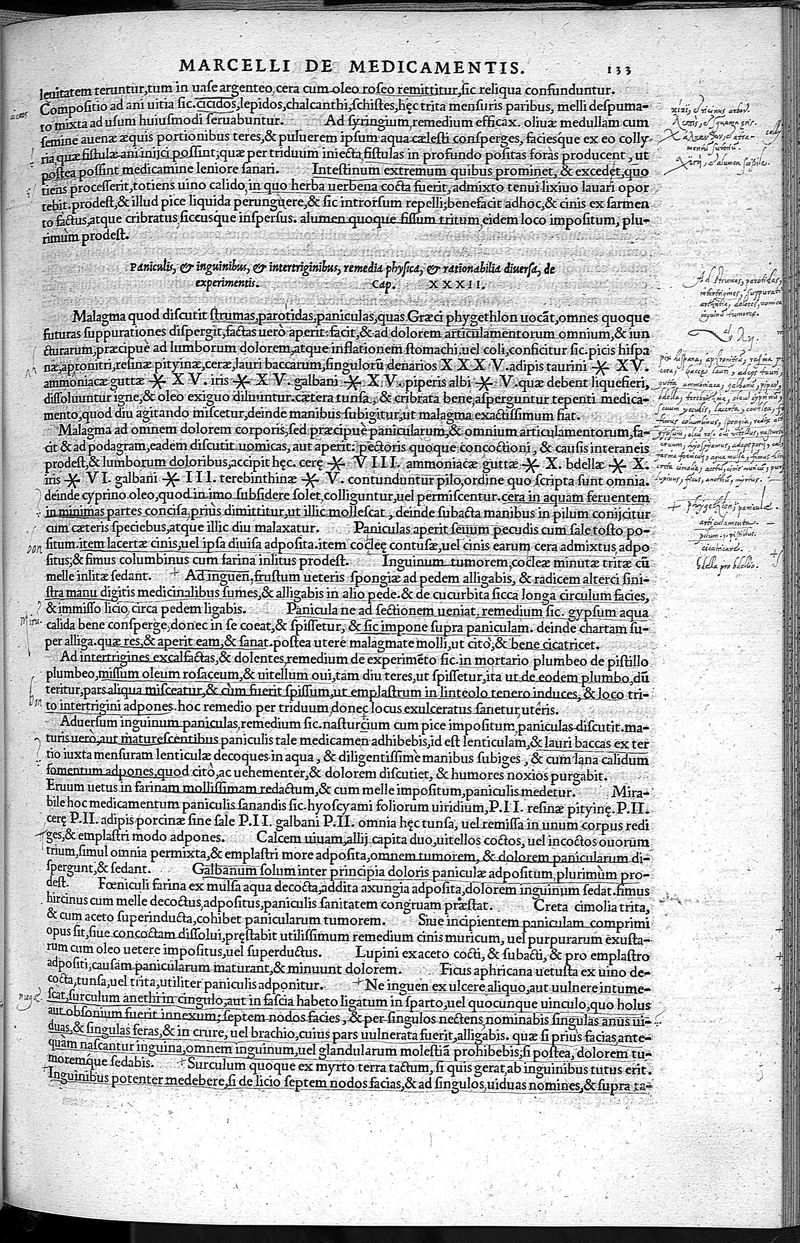 MARCELLI DE MEDICAMENTIS. 133
leuitatem teruntur, tum in uase argenteo, cera cum oleo roseo remittitur, sic reliqua confunduntur.
Compositio ad ani uitia sic. cicidos, lepidos, chalcanthi, schistes, hęc trita mensuris paribus, melli despuma-
to mixta ad usum huiusmodi seruabuntur. Ad syringium, remedium efficax. oliuæ medullam cum
semine auenæ æquis portionibus teres, & puluerem ipsum aqua cælesti consperges, faciesque ex eo colly
ria, quæ fistulæ ani inijci possint; quæ per triduum iniecta fistulas in profundo positas foràs producent, ut
postea possint medicamine leniore sanari. Intestinum extremum quibus prominet, & excedet, quo
tiens processerit, totiens uino calido, in quo herba uerbena cocta fuerit, admixto tenui lixiuo lauari opor
tebit. prodest, & illud pice liquida perunguere, & sic introrsum repelli; benefacit adhoc, & cinis ex sarmen
to factus, atque cribratus, siccusque inspersus. alumen quoque fissum tritum, eidem loco impositum, plu-
rimùm prodest.
Paniculis, & inguinibus, & intertriginibus, remedia physica, & rationabilia diuersa, de
experimentis. Cap. XXXII.
Malagma quod discutit strumas, parotidas, paniculas, quas Græci phygethlon uocāt, omnes quoque
futuras suppurationes dispergit, factas uerò aperit: facit, & ad dolorem articulamentorum omnium, & iun
cturarum, præcipuè ad lumborum dolorem, atque inflationem stomachi, uel coli, conficitur sic. picis hispa
næ, apronitri, resinæ pityinæ, ceræ, lauri baccarum, singulorū denarios XXXV. adipis taurini ✳ XV.
ammoniacæ guttæ ✳ XV. iris ✳ XV. galbani ✳ XV. piperis albi ✳ V. quæ debent liquefieri,
dissoluuntur igne, & oleo exiguo diluuntur. cætera tunsa, & cribrata bene, asperguntur tepenti medica-
mento, quod diu agitando miscetur, deinde manibus subigitur, ut malagma exactissimum fiat.
Malagma ad omnem dolorem corporis, sed præcipuè panicularum, & omnium articulamentorum, fa-
cit & ad podagram, eadem discutit uomicas, aut aperit: pectoris quoque concoctioni, & causis interaneis
prodest, & lumborum doloribus, accipit hęc. cerę ✳ VIII. ammoniacæ guttæ ✳ X. bdellæ ✳ X.
iris ✳ VI. galbani ✳ III. terebinthinæ ✳ V. contunduntur pilo, ordine quo scripta sunt omnia.
deinde cyprino oleo, quod in imo subsidere solet, colliguntur, uel permiscentur. cera in aquam feruentem
in minimas partes concisa, priùs dimittitur, ut illic mollescat, deinde subacta manibus in pilum conijcitur
cum cæteris speciebus, atque illic diu malaxatur. Paniculas aperit seuum pecudis cum sale tosto po-
situm. item lacertæ cinis, uel ipsa diuisa adposita. item cocleę contusæ, uel cinis earum cera admixtus, adpo
situs; & fimus columbinus cum farina inlitus prodest. Inguinum tumorem, cocleæ minutæ tritæ cū
melle inlitæ sedant. Ad inguen, frustum ueteris spongiæ ad pedem alligabis, & radicem alterci sini-
stra manu digitis medicinalibus sumes, & alligabis in alio pede. & de cucurbita sicca longa circulum facies,
& immisso licio, circa pedem ligabis. Panicula ne ad sectionem ueniat, remedium sic. gypsum aqua
calida bene consperge, donec in se coeat, & spissetur, & sic impone supra paniculam. deinde chartam su-
per alliga. quæ res, & aperit eam, & sanat. postea utere malagmate molli, ut cito, & bene cicatricet.
Ad intertrigines excalfactas, & dolentes, remedium de experimēto sic. in mortario plumbeo de pistillo
plumbeo, missum oleum rosaceum, & uitellum oui, tam diu teres, ut spissetur, ita ut de eodem plumbo, dū
teritur, pars aliqua misceatur, & cùm fuerit spissum, ut emplastrum in linteolo tenero induces, & loco tri-
to intertrigini adpones. hoc remedio per triduum, donec locus exulceratus sanetur, uteris.
Aduersum inguinum paniculas, remedium sic. nasturcium cum pice impositum, paniculas discutit. ma-
turis uerò, aut maturescentibus paniculis tale medicamen adhibebis, id est lenticulam, & lauri baccas ex ter
tio iuxta mensuram lenticulæ decoques in aqua, & diligentissimè manibus subiges, & cum lana calidum
fomentum adpones, quod citò, ac uehementer, & dolorem discutiet, & humores noxios purgabit.
Eruum uetus in farinam mollissimam redactum, & cum melle impositum, paniculis medetur. Mira-
bile hoc medicamentum paniculis sanandis sic. hyoscyami foliorum uiridium, P.II. resinæ pityinę. P.II.
cerę P.II. adipis porcinæ sine sale P.II. galbani P.II. omnia hęc tunsa, uel remissa in unum corpus redi
ges, & emplastri modo adpones. Calcem uiuam, allij capita duo, uitellos coctos, uel incoctos ouorum
trium, simul omnia permixta, & emplastri more adposita, omnem tumorem, & dolorem panicularum di-
spergunt, & sedant. Galbanum solum inter principia doloris paniculæ adpositum, plurimùm pro-
dest. Fœniculi farina ex mulsa aqua decocta, addita axungia adposita, dolorem inguinum sedat. fimus
hircinus cum melle decoctus, adpositus, paniculis sanitatem congruam præstat. Creta cimolia trita,
& cum aceto superinducta, cohibet panicularum tumorem. Siue incipientem paniculam comprimi
opus sit, siue concoctam dissolui, pręstabit utilissimum remedium cinis muricum, uel purpurarum exusta-
rum cum oleo uetere impositus, uel superductus. Lupini ex aceto cocti, & subacti, & pro emplastro
adpositi, causam panicularum maturant, & minuunt dolorem. Ficus aphricana uetusta ex uino de-
cocta, tunsa, uel trita, utiliter paniculis adponitur. Ne inguen ex ulcere aliquo, aut uulnere intume-
scat, surculum anethi in cingulo, aut in fascia habeto ligatum in sparto, uel quocunque uinculo, quo holus
aut obsonium fuerit innexum; septem nodos facies, & per singulos nectens, nominabis singulas anus ui-
duas, & singulas feras, & in crure, uel brachio, cuius pars uulnerata fuerit, alligabis. quæ si priùs facias, ante-
quàm nascantur inguina, omnem inguinum, uel glandularum molestiā prohibebis; si postea, dolorem tu-
moremque sedabis. Surculum quoque ex myrto terra tactum, si quis gerat, ab inguinibus tutus erit.
Inguinibus potenter medebere, si de licio septem nodos facias, & ad singulos, uiduas nomines, & supra ta-